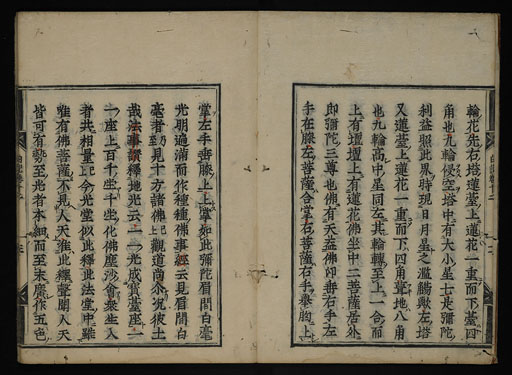 輪花先右塔蓮臺上蓮花一重而下臺四
角也九輪侵空塔中有大小星七是彌陀
利益照此界時現日月星之濫觴歟左塔
又蓮臺上蓮花一重而下四角聳地八角
也九輪高中星同左其輪轉至上一合而
上有壇壇上有蓮花佛坐中二菩薩居外
即彌陀三尊也佛有天蓋佛印垂右手左
手在膝左菩薩合掌右菩薩右手擧胸上
掌左手垂膝上上掌如此彌陀眉間白毫
光明遍滿而作種種佛事經云見眉間白
毫者到見十方諸佛記觀道尚介況彼土
哉法事讚釋地光云一一光成寶臺座一
一座上百千坐千坐化佛塵沙會衆生入
者共相量已今光堂似此釋此法堂中雖
唯有佛菩薩不見人天准此釋聲聞人天
皆可有歟至光者本細而至末廣作五色